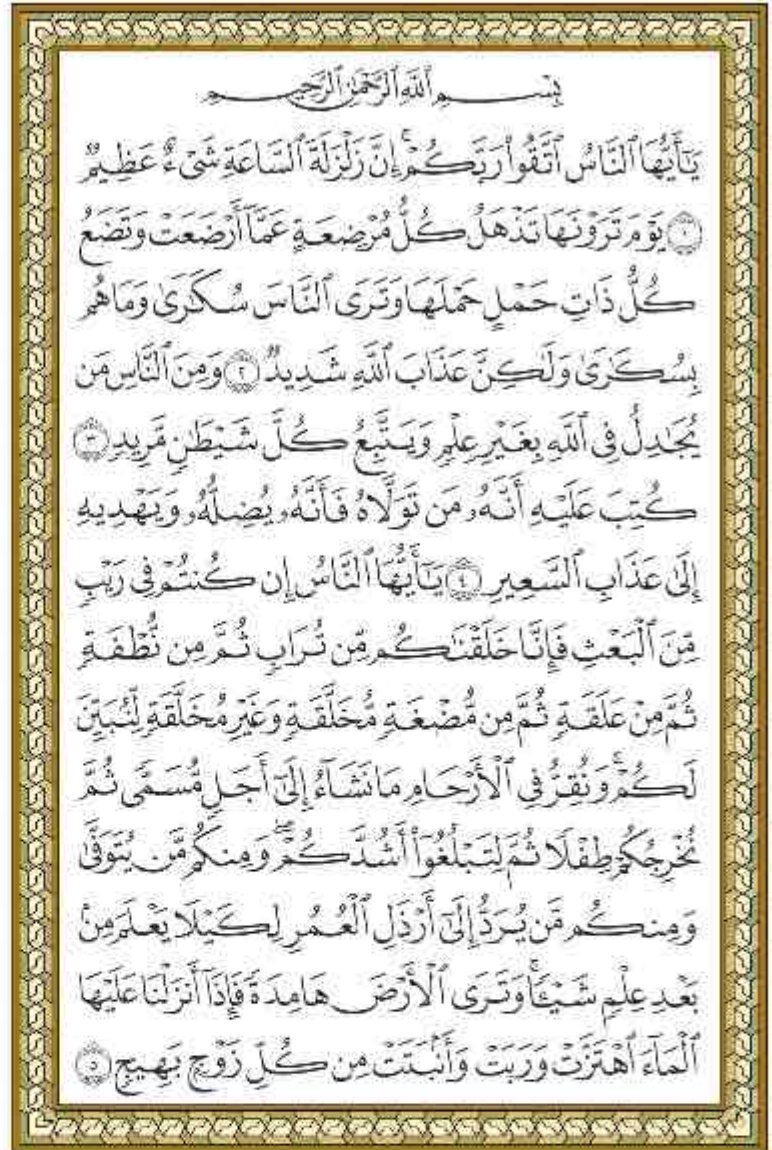 بِسۡمِ ٱللَّهِ ٱلرَّحۡمَٰنِ ٱلرَّحِيمِ
يَٰٓأَيُّهَا ٱلنَّاسُ ٱتَّقُواْ رَبَّكُمۡۚ إِنَّ زَلۡزَلَةَ ٱلسَّاعَةِ شَيۡءٌ عَظِيمٞ
١ يَوۡمَ تَرَوۡنَهَا تَذۡهَلُ كُلُّ مُرۡضِعَةٍ عَمَّآ أَرۡضَعَتۡ وَتَضَعُ
كُلُّ ذَاتِ حَمۡلٍ حَمۡلَهَا وَتَرَى ٱلنَّاسَ سُكَٰرَىٰ وَمَا هُم
بِسُكَٰرَىٰ وَلَٰكِنَّ عَذَابَ ٱللَّهِ شَدِيدٞ ٢ وَمِنَ ٱلنَّاسِ مَن
يُجَٰدِلُ فِي ٱللَّهِ بِغَيۡرِ عِلۡمٖ وَيَتَّبِعُ كُلَّ شَيۡطَٰنٖ مَّرِيدٖ ٣
كُتِبَ عَلَيۡهِ أَنَّهُۥ مَن تَوَلَّاهُ فَأَنَّهُۥ يُضِلُّهُۥ وَيَهۡدِيهِ
إِلَىٰ عَذَابِ ٱلسَّعِيرِ ٤ يَٰٓأَيُّهَا ٱلنَّاسُ إِن كُنتُمۡ فِي رَيۡبٖ
مِّنَ ٱلۡبَعۡثِ فَإِنَّا خَلَقۡنَٰكُم مِّن تُرَابٖ ثُمَّ مِن نُّطۡفَةٖ
ثُمَّ مِنۡ عَلَقَةٖ ثُمَّ مِن مُّضۡغَةٖ مُّخَلَّقَةٖ وَغَيۡرِ مُخَلَّقَةٖ لِّنُبَيِّنَ
لَكُمۡۚ وَنُقِرُّ فِي ٱلۡأَرۡحَامِ مَا نَشَآءُ إِلَىٰٓ أَجَلٖ مُّسَمّٗى ثُمَّ
نُخۡرِجُكُمۡ طِفۡلٗا ثُمَّ لِتَبۡلُغُوٓاْ أَشُدَّكُمۡۖ وَمِنكُم مَّن يُتَوَفَّىٰ
وَمِنكُم مَّن يُرَدُّ إِلَىٰٓ أَرۡذَلِ ٱلۡعُمُرِ لِكَيۡلَا يَعۡلَمَ مِنۢ
بَعۡدِ عِلۡمٖ شَيۡـٔٗاۚ وَتَرَى ٱلۡأَرۡضَ هَامِدَةٗ فَإِذَآ أَنزَلۡنَا عَلَيۡهَا
ٱلۡمَآءَ ٱهۡتَزَّتۡ وَرَبَتۡ وَأَنۢبَتَتۡ مِن كُلِّ زَوۡجِۭ بَهِيجٖ ٥